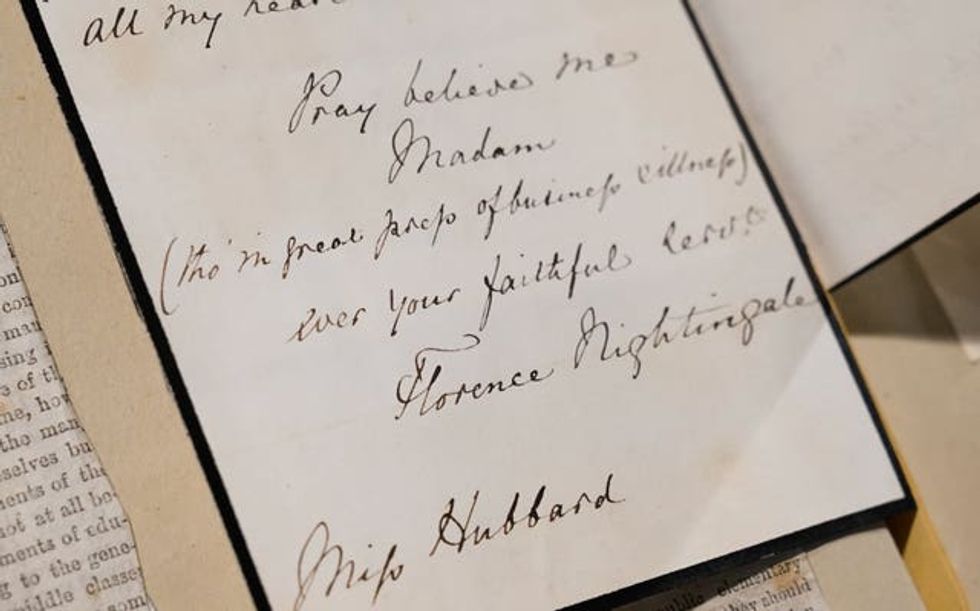 all my hear
Pray believe me
Madam
(tho' in great press of business & illness)
ever your faithful servt
Florence Nightingale
Miss Hubbard
on
con
mau
sing
e of th
me, how
the man
selves bu
ments of the
not at all be-
ments of edu-
g to the gene-
middle classe
som
public elementary
they should